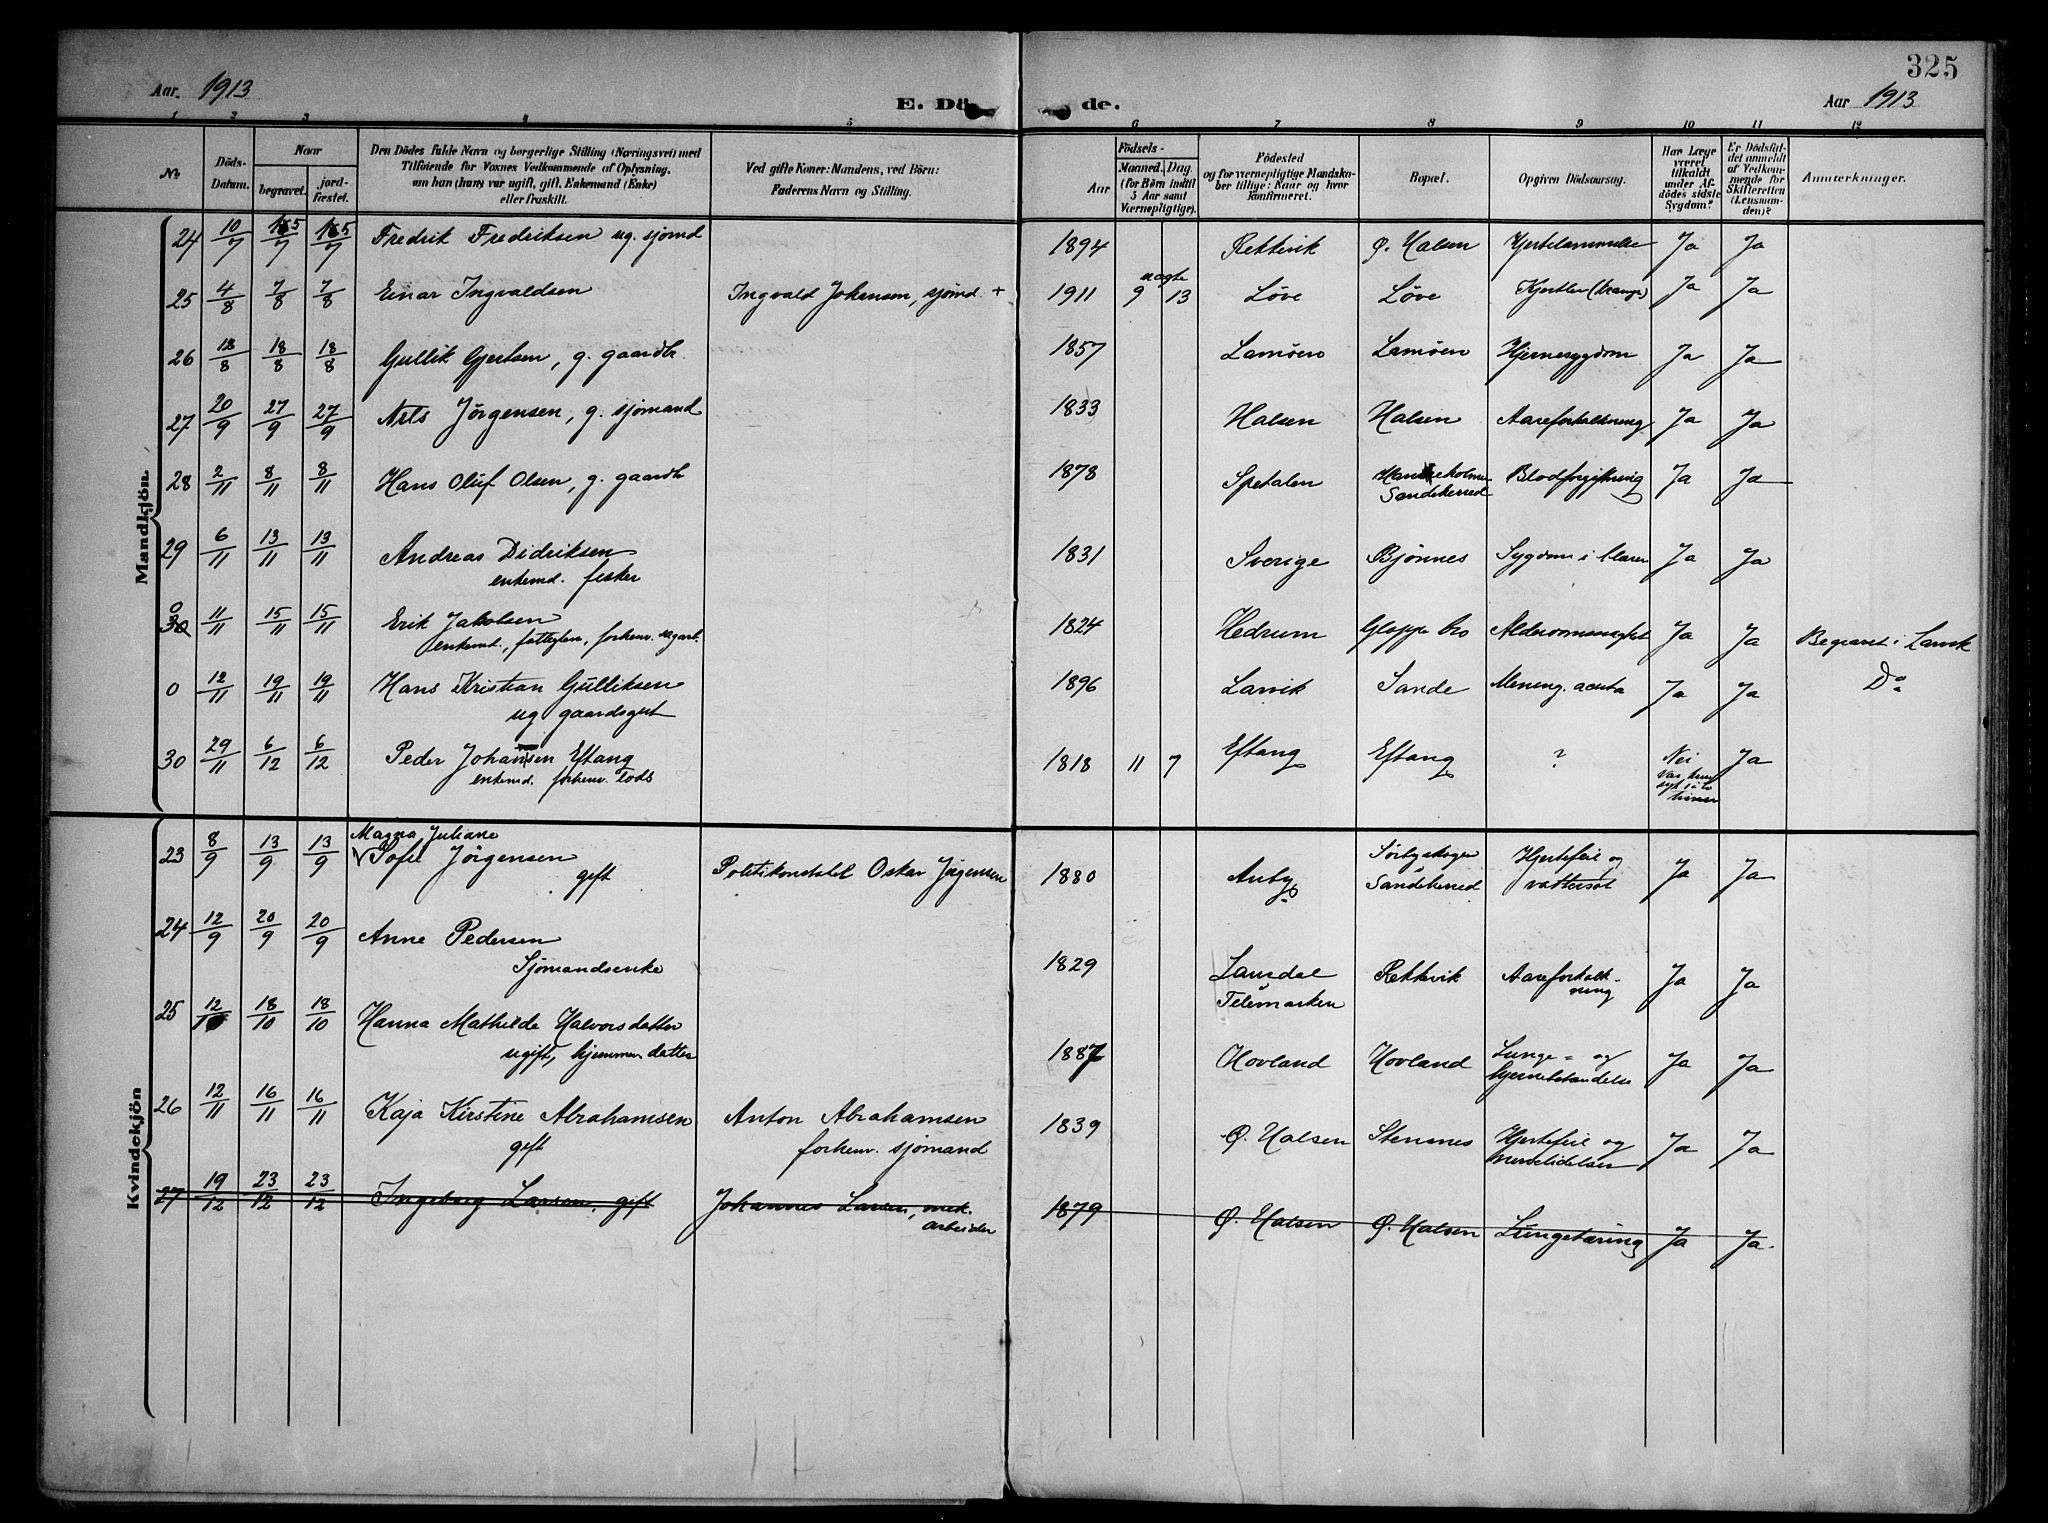 325
Aar. 1913
E. Dö de.
Aar 1913
1 2 3 4 5 6 7 8 9 10 11 12
No
Döds-Datum.
Naar
begravet.
jord-fæstet.
Den Dödes fulde Navn og borgerlige Stilling (Næringsvei) med
Tilföiende for Voxnes Vedkommende af Oplysning,
om han (hun) var ugift, gift, Enkemand (Enke)
eller fraskilt.
Ved gifte Koner: Mandens, ved Börn:
Faderens Navn og Stilling.
Födsels-
Aar
Maaned. Dag.
(for Börn indtil
5 Aar samt
Værnepligtige).
Födested
og for værnepligtige Mandska-
ber tillige: Naar og hvor
konfirmeret.
Bopæl.
Opgiven Dödsaarsag.
Har Læge
været
tilkaldt
under Af-
dödes sidste
Sygdom?
Er Dödsfal-
det anmeldt
af Vedkom-
mende for
Skifteretten
(Lensman-
den)?
Anmærkninger.
Mandkjön.
24 10/7 15/7 15/7 Fredrik Fredriksen ug. sjømd 1894 Rekkevik Ø. Halsen Hjertelammelse Ja Ja
25 4/8 7/8 7/8 Einar Ingvaldsen Ingvald Johansen, sjømd. + 1911 9 13 Løve Løve Kjertler Ja Ja
26 12/8 18/8 18/8 Gullik Gjertsen, g. gaardbr. 1857 Lamøen Lamøen Hjernesygdom Ja Ja
27 20/9 27/9 27/9 Nils Jörgensen, g. sjömand 1833 Halsen Halsen Aareforkalkning Ja Ja
28 2/11 8/11 8/11 Hans Oluf Olsen, g. gaardb 1878 Spetalen Sandeherred Blodforgiftning Ja Ja
29 6/11 13/11 13/11 Andreas Didriksen 1831 Sverige Bjönnes Sygdom i blæren Ja Ja
enkemd. fisker
30 0 11/11 15/11 15/11 Erik Jakobsen 1824 Hedrum Gloppe bro Alderdomssvaghet Ja Ja Begravet i Larvik
enkemd., fattiglem, forhenv. sagarb.
0 12/11 19/11 19/11 Hans Kristian Gulliksen 1896 Larvik Sande Mening. acuta Ja Ja Do
ug gaardsgut
30 29/11 6/12 6/12 Peder Johansen Eftang 1818 11 7 Eftang Eftang ? Nei Ja
enkemd. forhenv. lods
Kvindekjön
23 8/9 13/9 13/9 Magna Juliane
Sofie Jörgensen gift Politikonstabel Oskar Jörgensen 1880 Auby Sörbyskogen Sandeherred Hjertefeil og vattersot Ja Ja
24 12/9 20/9 20/9 Anne Pedersen 1829 Laurdal Telemarken Rekkevik Aareforkalkning Ja Ja
Sjömandsenke
25 12/10 18/10 18/10 Hanna Mathilde Halvorsdatter 1887 Hovland Hovland Lunge- og hjernebetændelse Ja Ja
ugift, hjemmev. datter
26 12/11 16/11 16/11 Kaja Kirstine Abrahamsen Anton Abrahamsen 1839 Ø. Halsen Stensnes Hjertefeil og nervelidelser Ja Ja
gift forhenv. sjömand
27 19/12 23/12 23/12 Ingeborg Larsen, gift Johannes Larsen, mek. arbeider 1879 Ø. Halsen Ø. Halsen Lungetæring Ja Ja.